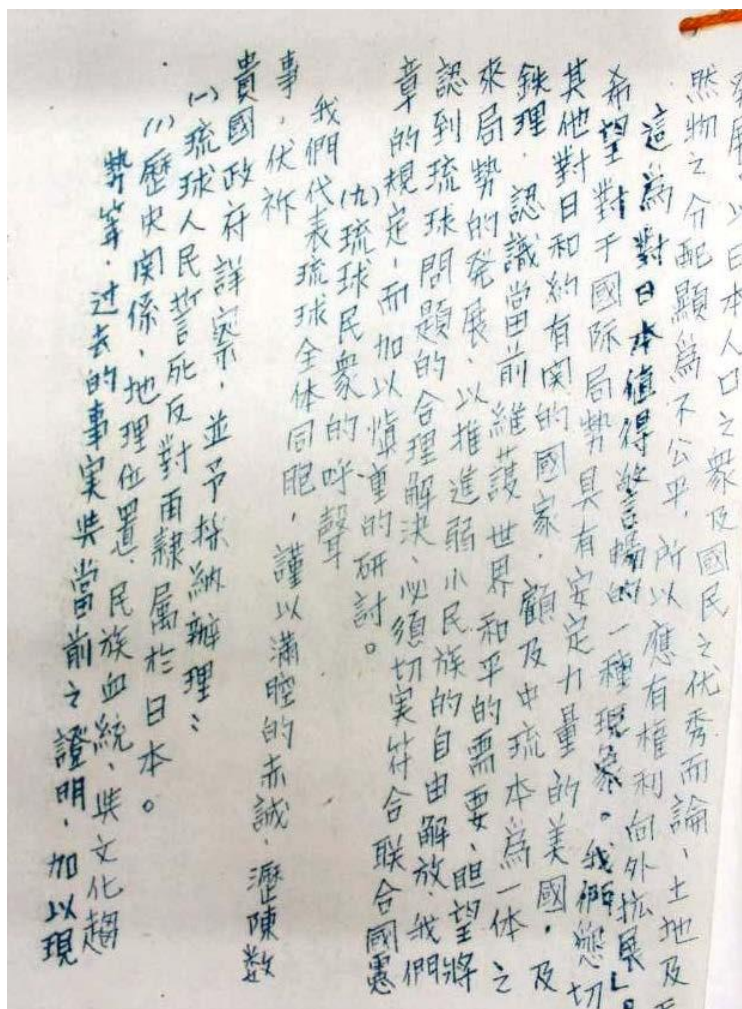 發展，以日本人口之衆及國民之优秀而論，土地及天
然物之分配顯為不公平，所以應有權利向外拡展」。
這為對日本值得警惕的一種現象。我們懇切
希望對于國际局勢具有安定力量的美國，及
其他對日和約有関的國家，顧及中琉本為一体之
鉄理，認識當前維護世界和平的需要，胆望將
來局勢的発展，以推進弱小民族的自由解放，我們
認到琉球問題的合理解決，必須切实符合联合國憲
章的規定，而加以慎重的研討。
(九)琉球民衆的呼聲
我們代表琉球全体同胞，謹以滿腔的赤誠，瀝陳数
事，伏祈
貴國政府詳察，並予採納辦理：
(一)琉球人民誓死反對再隸属於日本。
(1)歷史関係、地理位置、民族血統、與文化趨
勢等，过去的事実與當前之證明，加以現